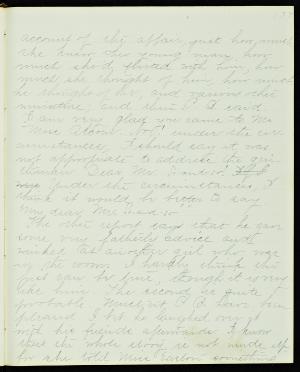 account of the affair, just how much
she knew this young man, how
much she'd flirted with him, how
much she thought of him, how much
he thought of her, and various other
minutiae, and then I said
I am very glad you came to me
"Miss Alcorn. No! under the cir
cumstances, I should say it was
not appropriate to address the gen
tleman Dear Mr. So-and-so!
under the circumstances, I
think it would be better to say
"My dear Mr. So-and-so"
The other report says that he gave
some very fatherly advice and
winked at another girl who was
in the room. I hardly think the
just gave her fine, though it
like him. The second is quite
probable. Wouldn't I have been
pleased I bet he laughed over it
with his friends afterwards. I know
that the whole story is not made up
for she told Miss something